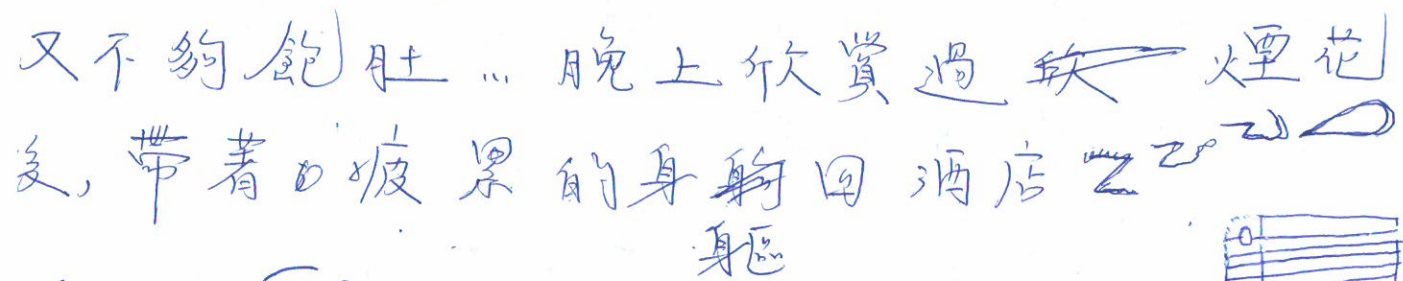 又不夠飽肚…晚上欣賞過煙花
後,帶著疲累的身軀回酒店 zzzz